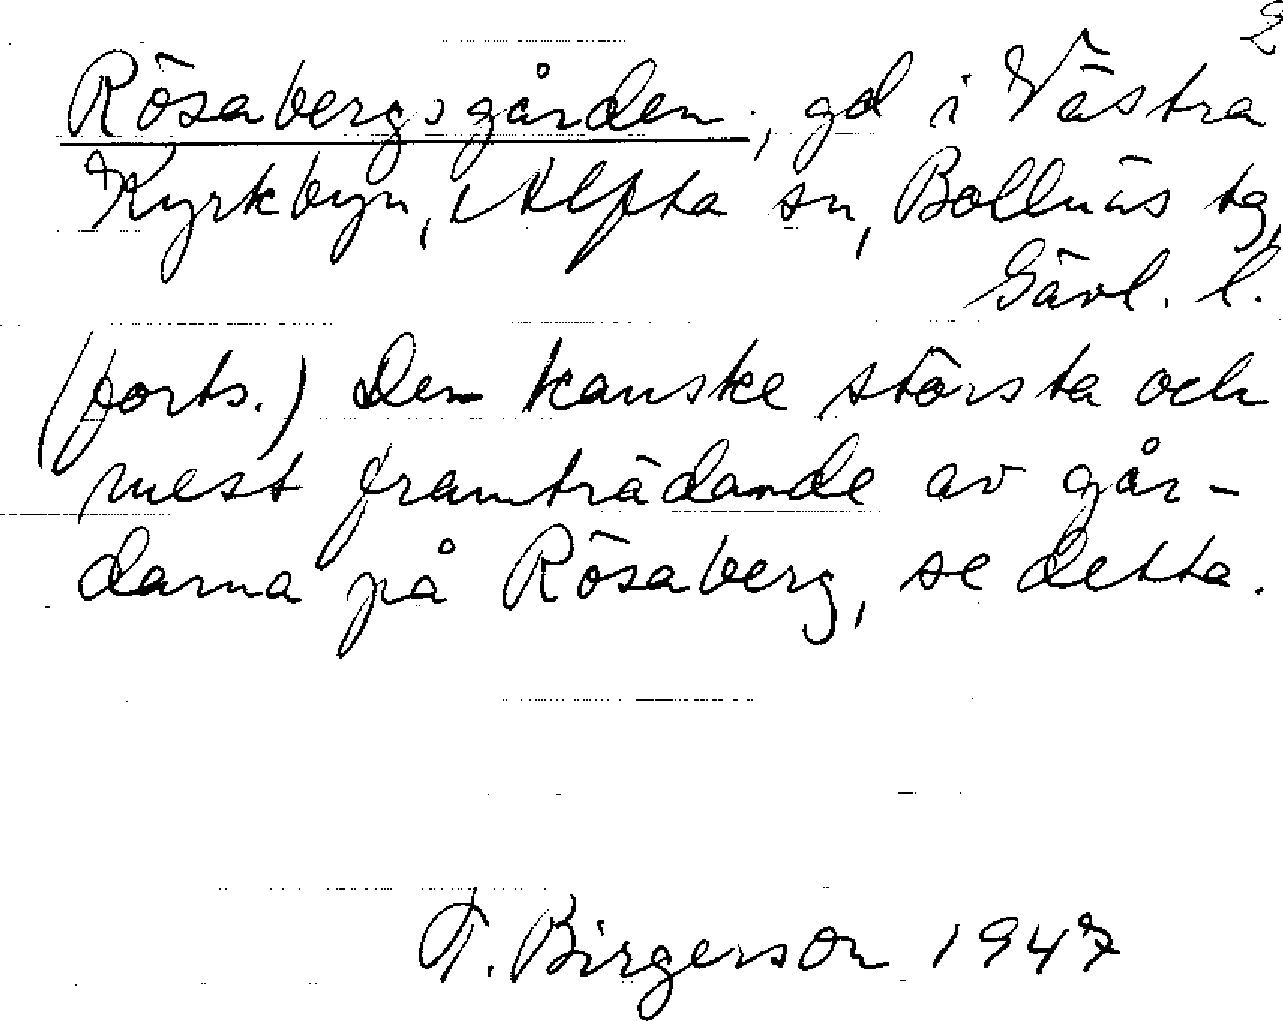 2
Rösabergsgården, gd i Västra
Kyrkbyn, Alfta sn, Bollnäs tg,
Gävl. l.
(forts.) Den kanske största och
mest framträdande av går-
darna på Rösaberg, se detta.
T. Birgerson 1947